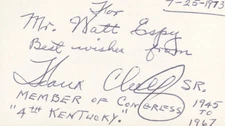 9-25-1973
For
Mr. Watt Espy
Best wishes from
Frank Chelf SR.
MEMBER OF CONGRESS 1945
"4TH KENTUCKY." TO
1967